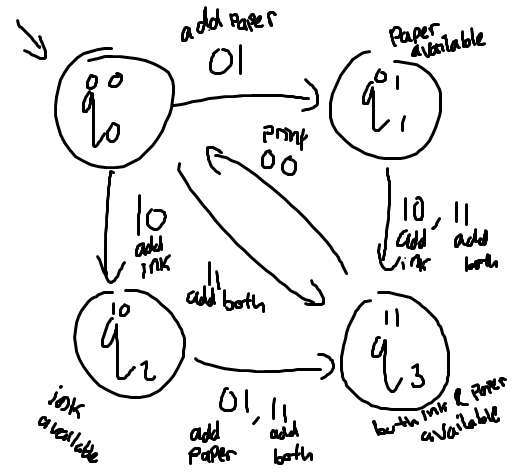 add Paper
01
Paper
available
00
q0
01
q1
print
00
10
add
ink
10, 11
add add
ink both
11
add both
10
q2
11
q3
ink
available
01, 11
add add
Paper both
both ink & Paper
available